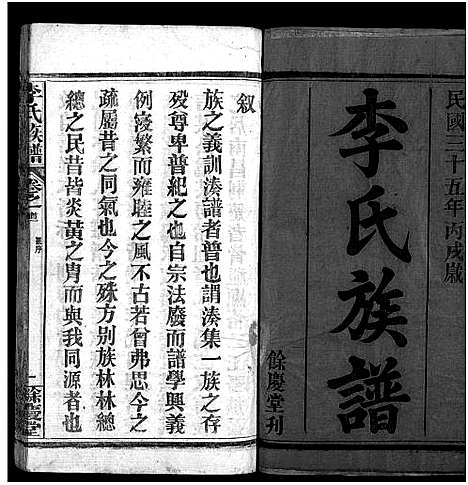 民國三十五年丙戌歲
李氏族譜
餘慶堂刊
叙
族之義訓湊譜者普也謂湊集一族之存
歿尊卑普紀之也自宗法廢而譜學興義
例寖繁而雍睦之風不古若曾弗思今之
疏屬昔之同氣也今之殊方別族林林總
總之民昔皆炎黃之胄而與我同源者也
李氏族譜
卷之首
餘慶堂